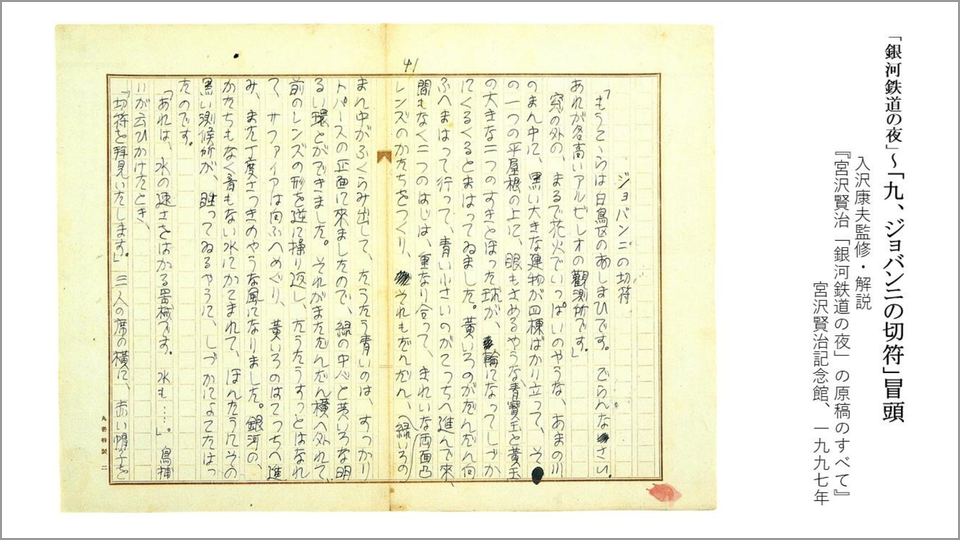 「銀河鉄道の夜」〜「九、ジョバンニの切符」冒頭
入沢康夫監修・解説
『宮沢賢治「銀河鉄道の夜」の原稿のすべて』
宮沢賢治記念館、一九九七年
41
ジョバンニの切符
「もうこゝらは白鳥区のおしまひです。ごらんなさい。
あれが名高いアルビレオの觀測所です。」
窓の外の、まるで花火でいっぱいのやうな、あまの川
のまん中に、黒い大きな建物が四棟ばかり立って、そ
の一つの平屋根の上に、眼もさめるやうな青寶玉と黄玉
の大きな二つのすきとほった球が、輪になってしづか
にくるくるとまはってゐました。黄いろのがだんだん向
ふへまはって行って、青い小さいのがこっちへ進んで來、
間もなく二つのはじは、重なり合って、きれいな両面凸
レンズのかたちをつくり、それもだんだん、(緑いろの
まん中がふくらみ出して、たうたう青いのは、すっかり
トパースの正面に來ましたので、緑の中心と黄いろな明
るい環とができました。それがまただんだん横へ外れて、
前のレンズの形を逆に操り返し、たうたうすっとはなれ
て、サファイアは向ふへめぐり、黄いろのはこっちへ進
み、また丁度さっきのやうな風になりました。銀河の、
かたちもなく音もない水にかこまれて、ほんたうにその
黒い測候所が、睡ってゐるやうに、しづかによこたはっ
たのです。
「あれは、水の速さをはかる器械です。水も……。」鳥捕
りが云ひかけたとき、
「切符を拝見いたします。」三人の席の横に、赤い帽子を
丸善特製 二